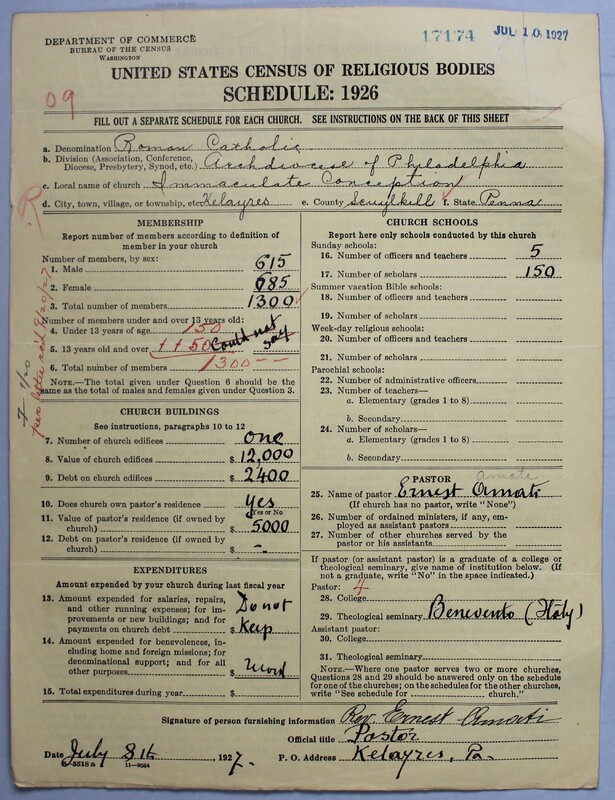 DEPARTMENT OF COMMERCE
BUREAU OF THE CENSUS
WASHINGTON
17174 JUL 10 1927
UNITED STATES CENSUS OF RELIGIOUS BODIES
SCHEDULE: 1926
09
FILL OUT A SEPARATE SCHEDULE FOR EACH CHURCH. SEE INSTRUCTIONS ON THE BACK OF THIS SHEET
a. Denomination Roman Catholic
b. Division (Association, Conference, Diocese, Presbytery, Synod, etc.) Archdiocese of Philadelphia
c. Local name of church Immaculate Conception
d. City, town, village, or township, etc. Kelayres e. County Scuylkill f. State Penna
MEMBERSHIP
Report number of members according to definition of
member in your church
Number of members, by sex:
1. Male 615
2. Female 685
3. Total number of members 1300
Number of members under and over 13 years old:
4. Under 13 years of age 150
5. 13 years old and over 1150 Could not say
6. Total number of members 1300
NOTE.—The total given under Question 6 should be the
same as the total of males and females given under Question 3.
per letter rec'd 8/20/27
CHURCH BUILDINGS
See instructions, paragraphs 10 to 12
7. Number of church edifices one
8. Value of church edifices $ 12,000
9. Debt on church edifices $ 2400
10. Does church own pastor's residence? Yes
(Yes or No)
11. Value of pastor's residence (if owned by
church) $ 5000
12. Debt on pastor's residence (if owned by
church) $ -
EXPENDITURES
Amount expended by your church during last fiscal year
13. Amount expended for salaries, repairs,
and other running expenses; for im-
provements or new buildings; and for
payments on church debt $ Do not Keep
14. Amount expended for benevolences, in-
cluding home and foreign missions; for
denominational support; and for all
other purposes $
15. Total expenditures during year $
CHURCH SCHOOLS
Report here only schools conducted by this church
Sunday schools:
16. Number of officers and teachers 5
17. Number of scholars 150
Summer vacation Bible schools:
18. Number of officers and teachers
19. Number of scholars
Week-day religious schools:
20. Number of officers and teachers
21. Number of scholars
Parochial schools:
22. Number of administrative officers
23. Number of teachers—
a. Elementary (grades 1 to 8)
b. Secondary
24. Number of scholars—
a. Elementary (grades 1 to 8)
b. Secondary
PASTOR
Amati
25. Name of pastor Ernest Amati
(If church has no pastor, write "None")
26. Number of ordained ministers, if any, em-
ployed as assistant pastors
27. Number of other churches served by the
pastor or his assistants
If pastor (or assistant pastor) is a graduate of a college or
theological seminary, give name of institution below. (If
not a graduate, write "No" in the space indicated.)
Pastor: 4
28. College
29. Theological seminary Benevento (Italy)
Assistant pastor:
30. College
31. Theological seminary
NOTE.—Where one pastor serves two or more churches,
Questions 28 and 29 should be answered only on the schedule
for one of the churches; on the schedules for the other churches,
write "See schedule for church."
Signature of person furnishing information Rev. Ernest Amati
Official title Pastor
Date July 8th, 1927. P. O. Address Kelayres, Pa.
6-5518a 11-9054